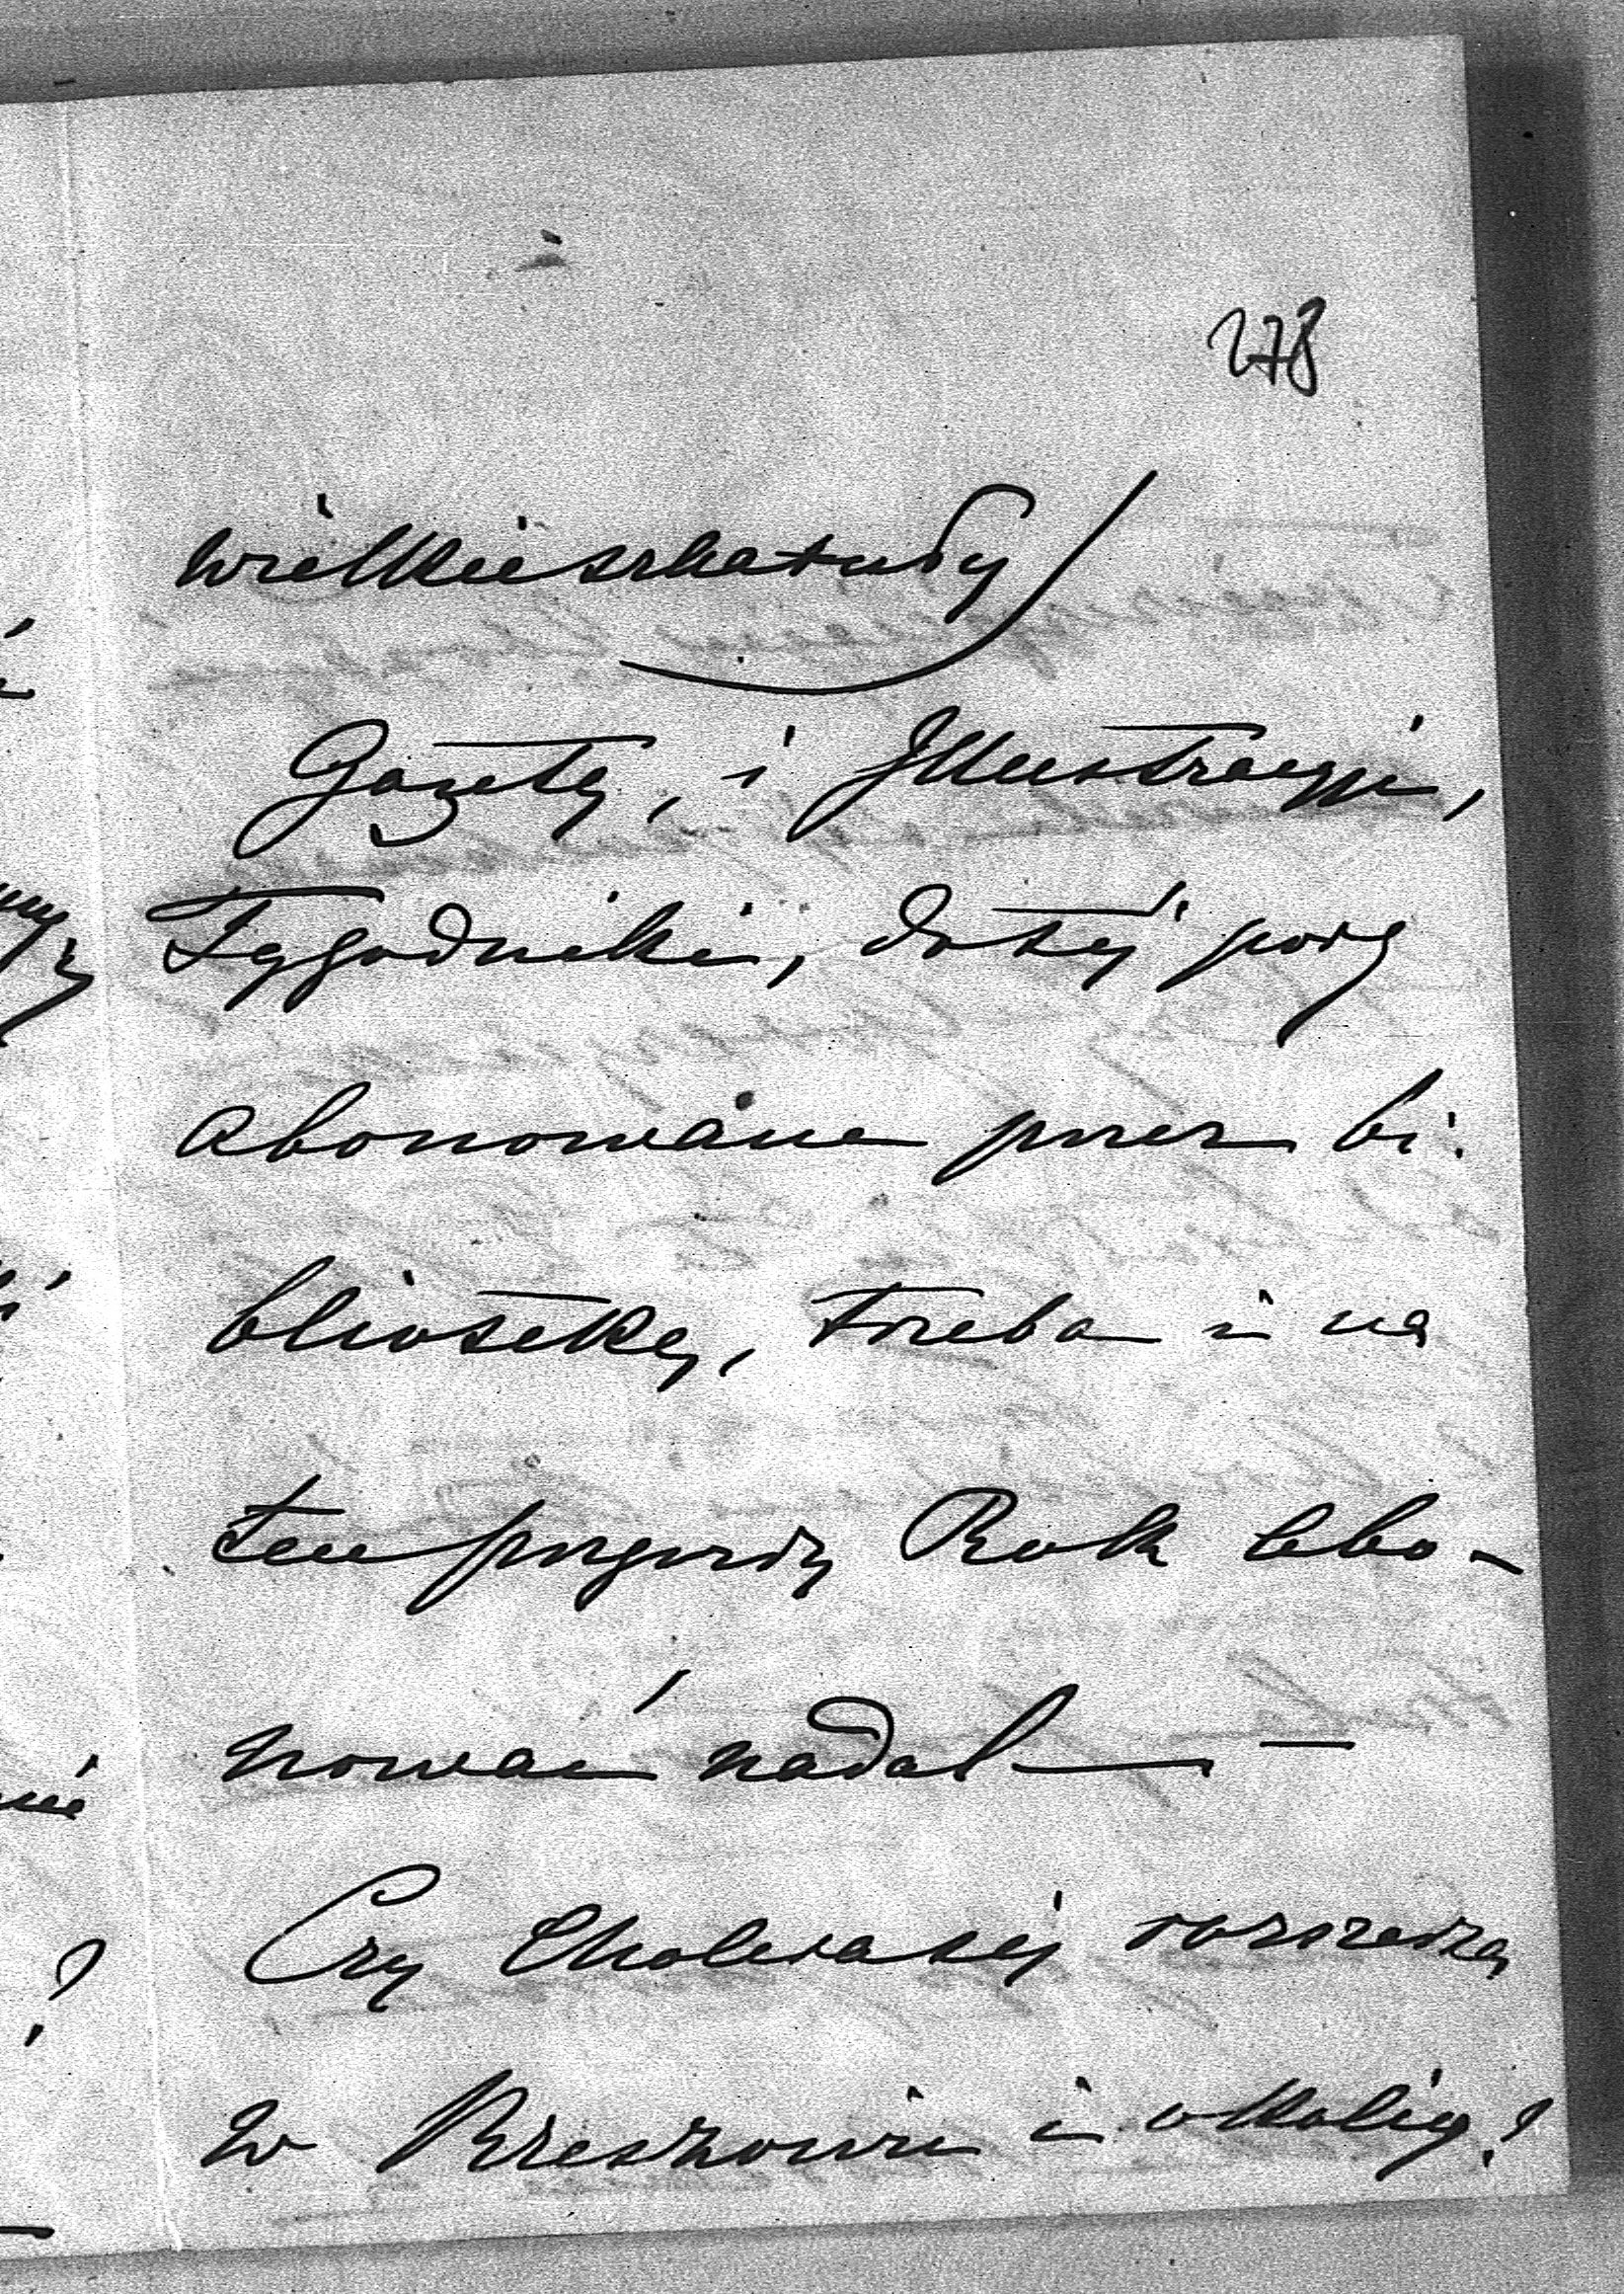 278
wielkie szkatuły
Gazety, i Jllustracyje,
Tygodniki, do téj pory
abonowane przez bi-
bliotekę, trzeba i na
ten przyszły Rok abo-
nować nadal —
Czy w okolicy
w Rzeszowie i okolicy?